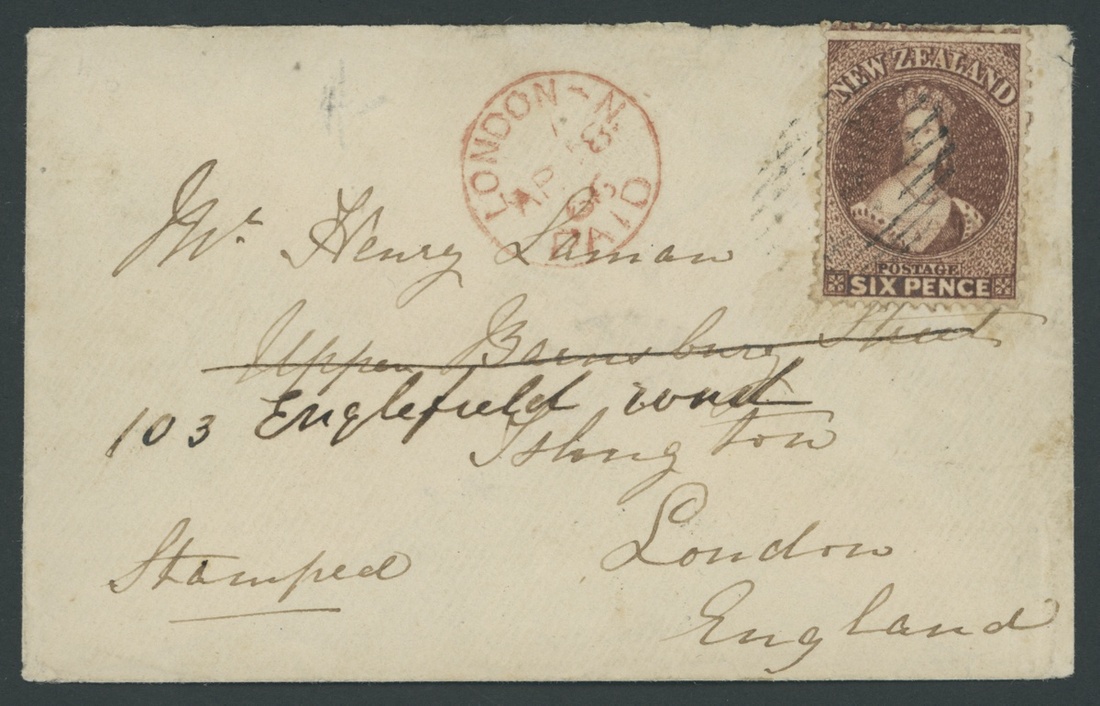 LONDON - N
AP 18
65
PAID
NEW ZEALAND
POSTAGE
SIX PENCE
Mr. Henry Laman
Upper Barnsbury Street
103 Englefield road
Islington
Stamped
London
England